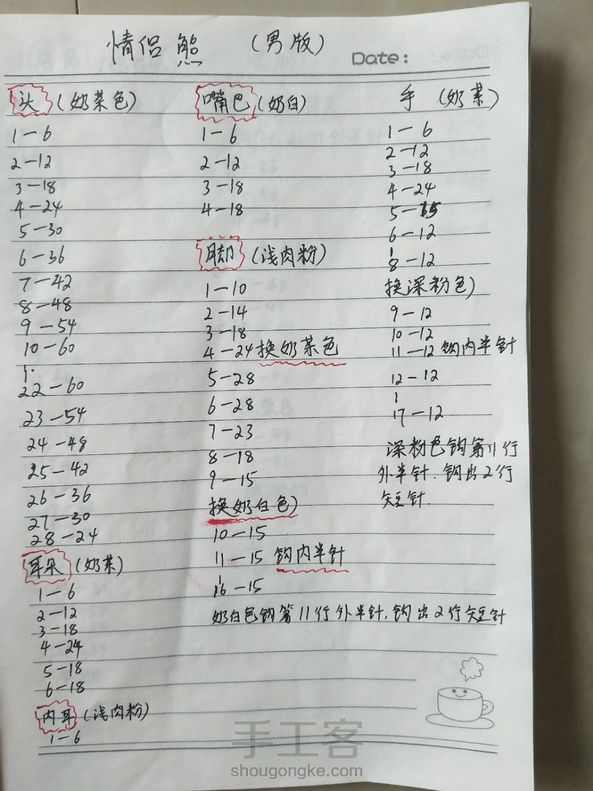 情侣熊 (男版)
Date:
头 (奶茶色)
1-6
2-12
3-18
4-24
5-30
6-36
7-42
8-48
9-54
10-60
22-60
23-54
24-48
25-42
26-36
27-30
28-24
耳朵 (奶茶)
1-6
2-12
3-18
4-24
5-18
6-18
内耳 (浅肉粉)
1-6
嘴巴 (奶白)
1-6
2-12
3-18
4-18
脚 (浅肉粉)
1-10
2-14
3-18
4-24 换奶茶色
5-28
6-28
7-23
8-18
9-15
换奶白色)
10-15
11-15 钩内半针
16-15
奶白色钩第11行外半针,钩出2行短针
手 (奶茶)
1-6
2-12
3-18
4-24
5-
6-12
8-12
换深粉色)
9-12
10-12
11-12 钩内半针
12-12
17-12
深粉色钩第11行
外半针.钩出2行
短针.
手工客
shougongke.com